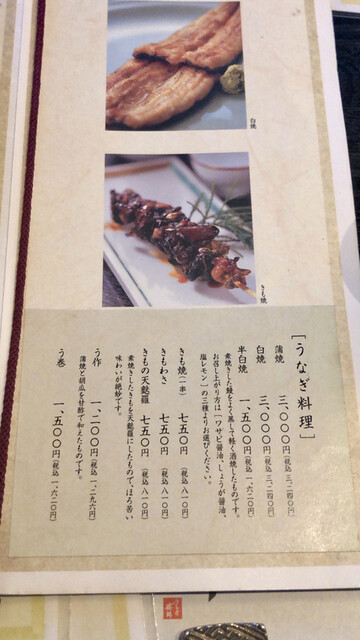 白焼
きも焼
［うなぎ料理］
蒲焼 三、〇〇〇円（税込 三、二四〇円）
白焼 三、〇〇〇円（税込 三、二四〇円）
半白焼 一、五〇〇円（税込 一、六二〇円）
素焼きした鰻をよく蒸して軽く酒焼したものです。
お召し上がり方は［ワサビ醤油、しょうが醤油、
塩レモン］の三種よりお選びください。
きも焼（一串） 七五〇円（税込 八一〇円）
きもわさ 七五〇円（税込 八一〇円）
きもの天麩羅 七五〇円（税込 八一〇円）
素焼きしたきもを天麩羅にしたもので、ほろ苦い
味わいが絶妙です。
う作 一、二〇〇円（税込 一、二九六円）
蒲焼と胡瓜を甘酢で和えたものです。
う巻 一、五〇〇円（税込 一、六二〇円）